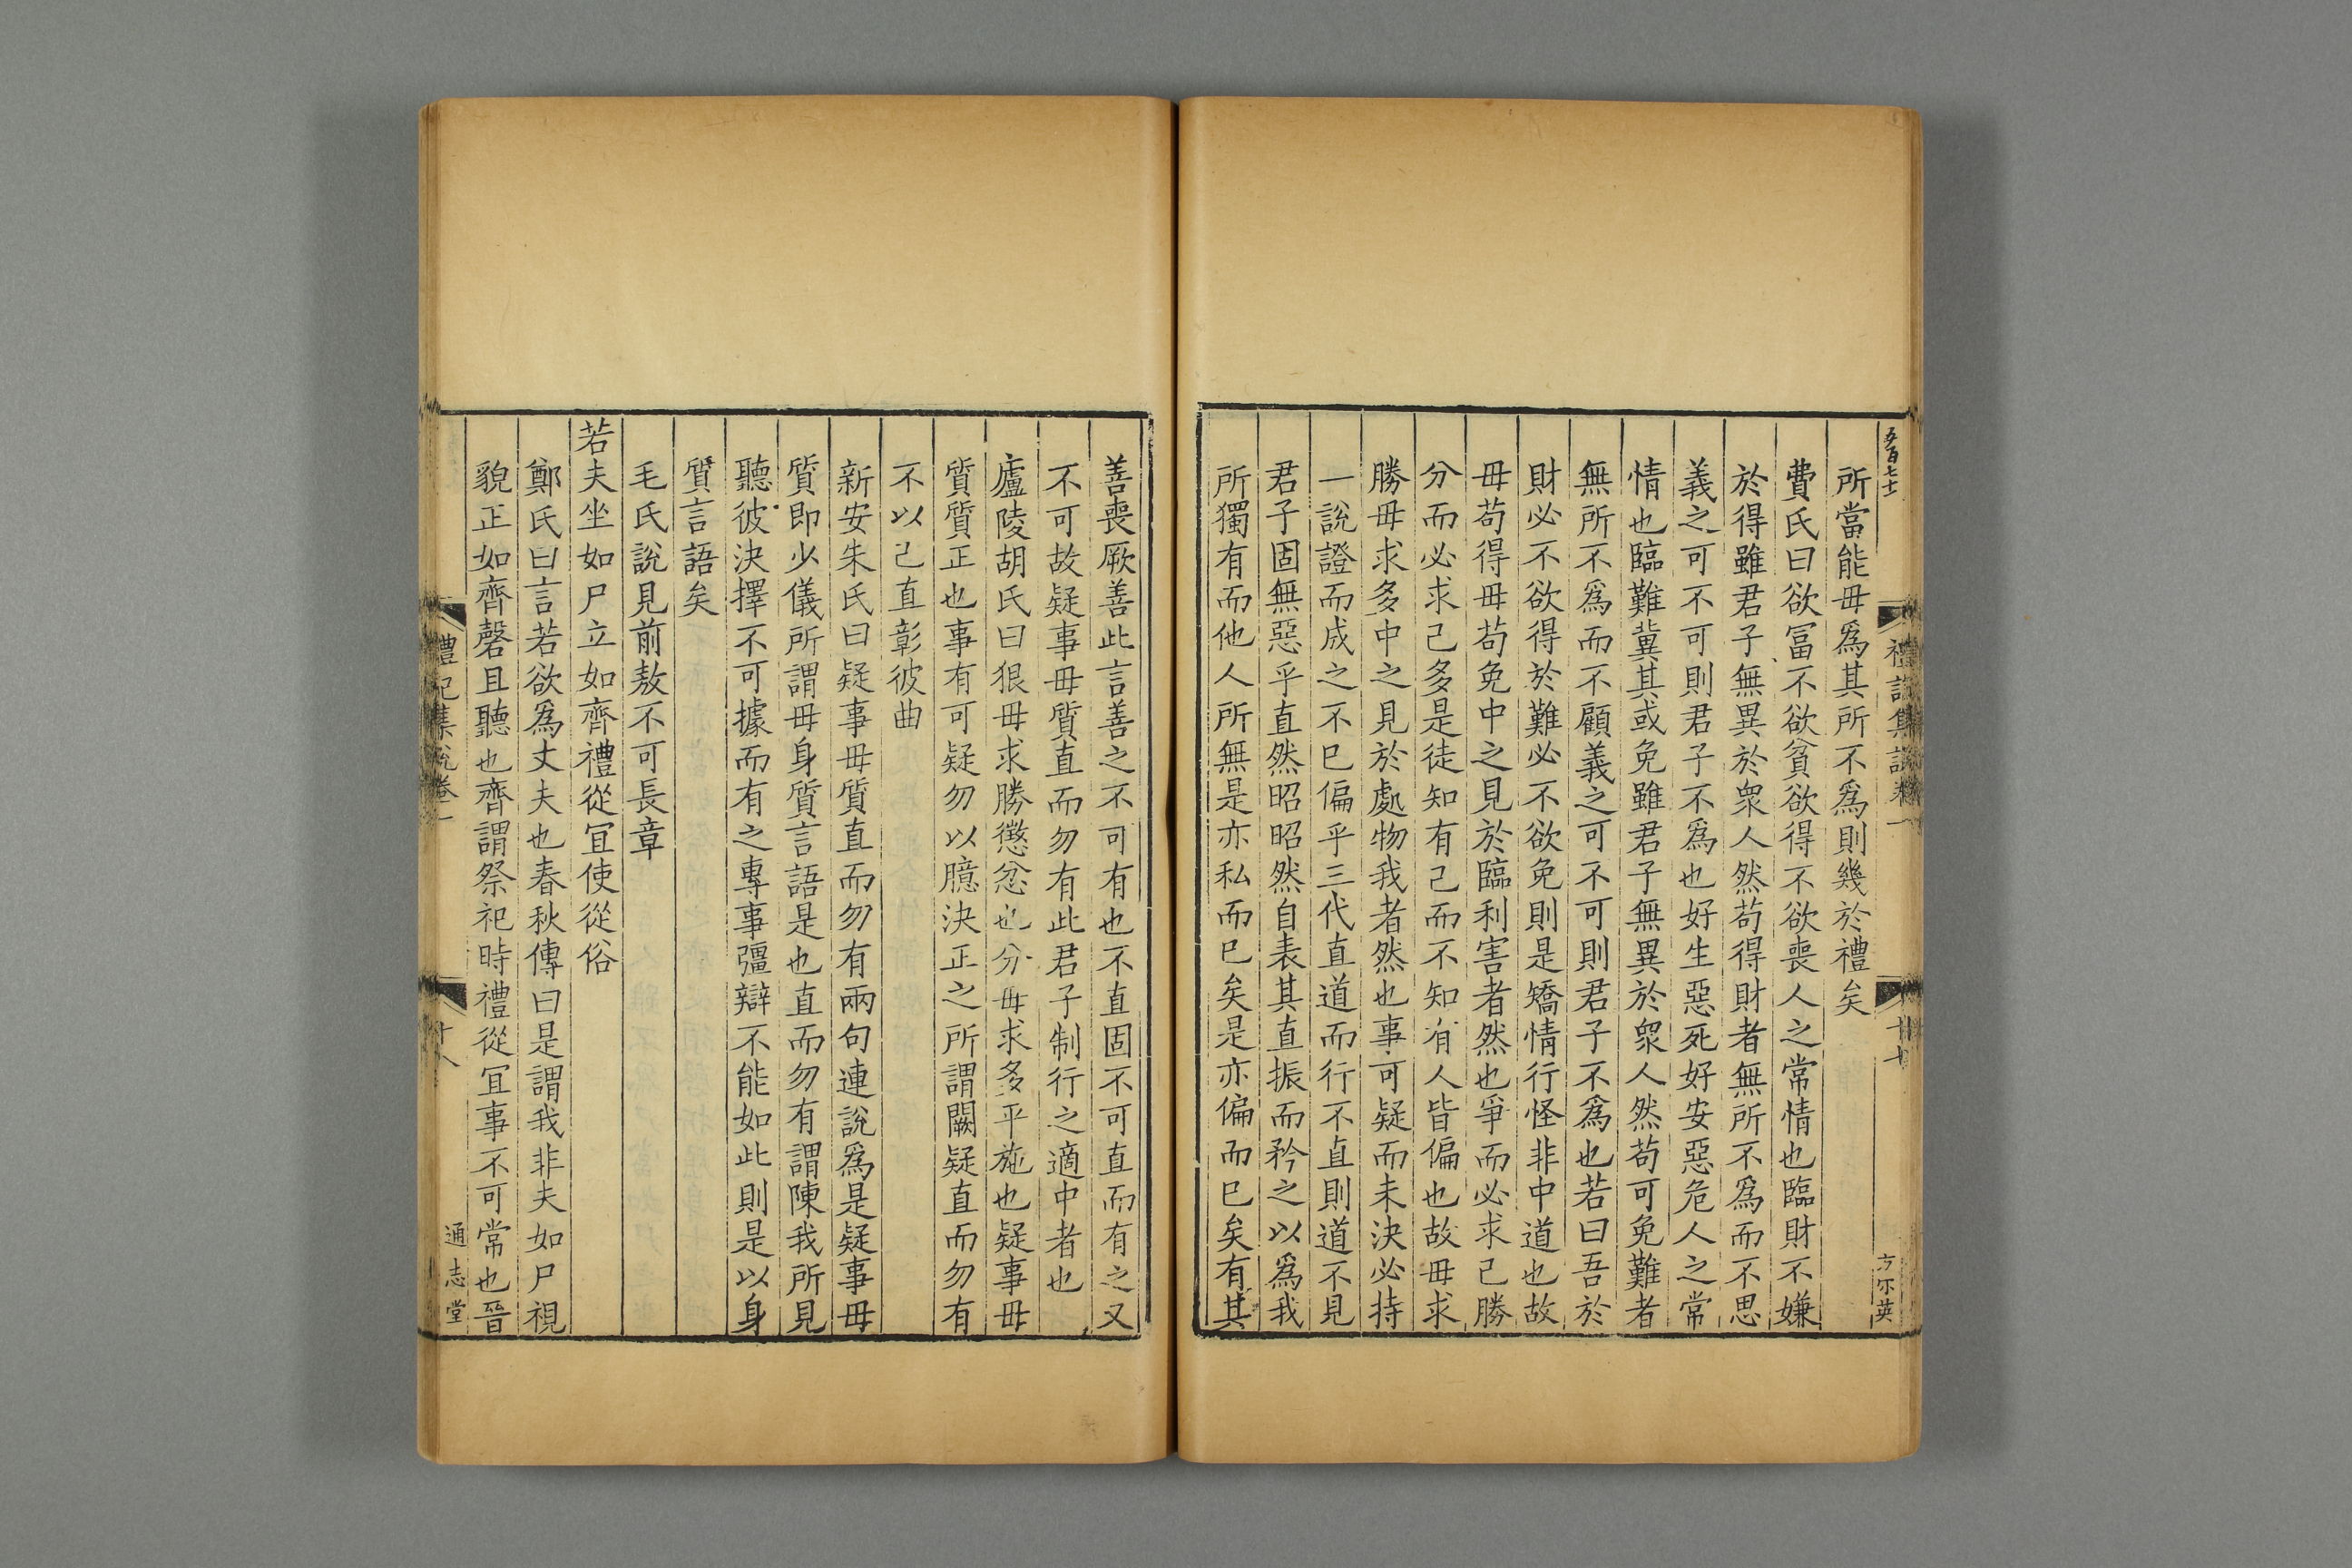 所當能毋爲其所不爲則幾於禮矣
費氏曰欲冨不欲貧欲得不欲喪人之常情也臨財不嫌
於得雖君子無異於衆人然苟得財者無所不爲而不思
義之可不可則君子不爲也好生惡死好安惡危人之常
情也臨難冀其或免雖君子無異於衆人然苟可免難者
無所不爲而不顧義之可不可則君子不爲也若曰吾於
財必不欲得於難必不欲免則是矯情行怪非中道也故
毋苟得毋苟免中之見於臨利害者然也爭而必求己勝
分而必求己多是徒知有己而不知有人皆偏也故毋求
勝毋求多中之見於處物我者然也事可疑而未決必持
一說證而成之不巳偏乎三代直道而行不直則道不見
君子固無惡乎直然昭昭然自表其直振而矜之以爲我
所獨有而他人所無是亦私而巳矣是亦偏而巳矣有其
善喪厥善此言善之不可有也不直固不可直而有之又
不可故疑事毋質直而勿有此君子制行之適中者也
廬陵胡氏曰狠毋求勝懲忿也分毋求多平施也疑事毋
質質正也事有可疑勿以臆決正之所謂闕疑直而勿有
不以己直彰彼曲
新安朱氏曰疑事毋質直而勿有兩句連說爲是疑事毋
質即少儀所謂毋身質言語是也直而勿有謂陳我所見
聽彼決擇不可據而有之專事彊辯不能如此則是以身
質言語矣
毛氏說見前敖不可長章
若夫坐如尸立如齊禮從宜使從俗
鄭氏曰言若欲爲丈夫也春秋傳曰是謂我非夫如尸視
貌正如齊磬且聽也齊謂祭祀時禮從宜事不可常也晉
禮記集說卷一
十八
通志堂